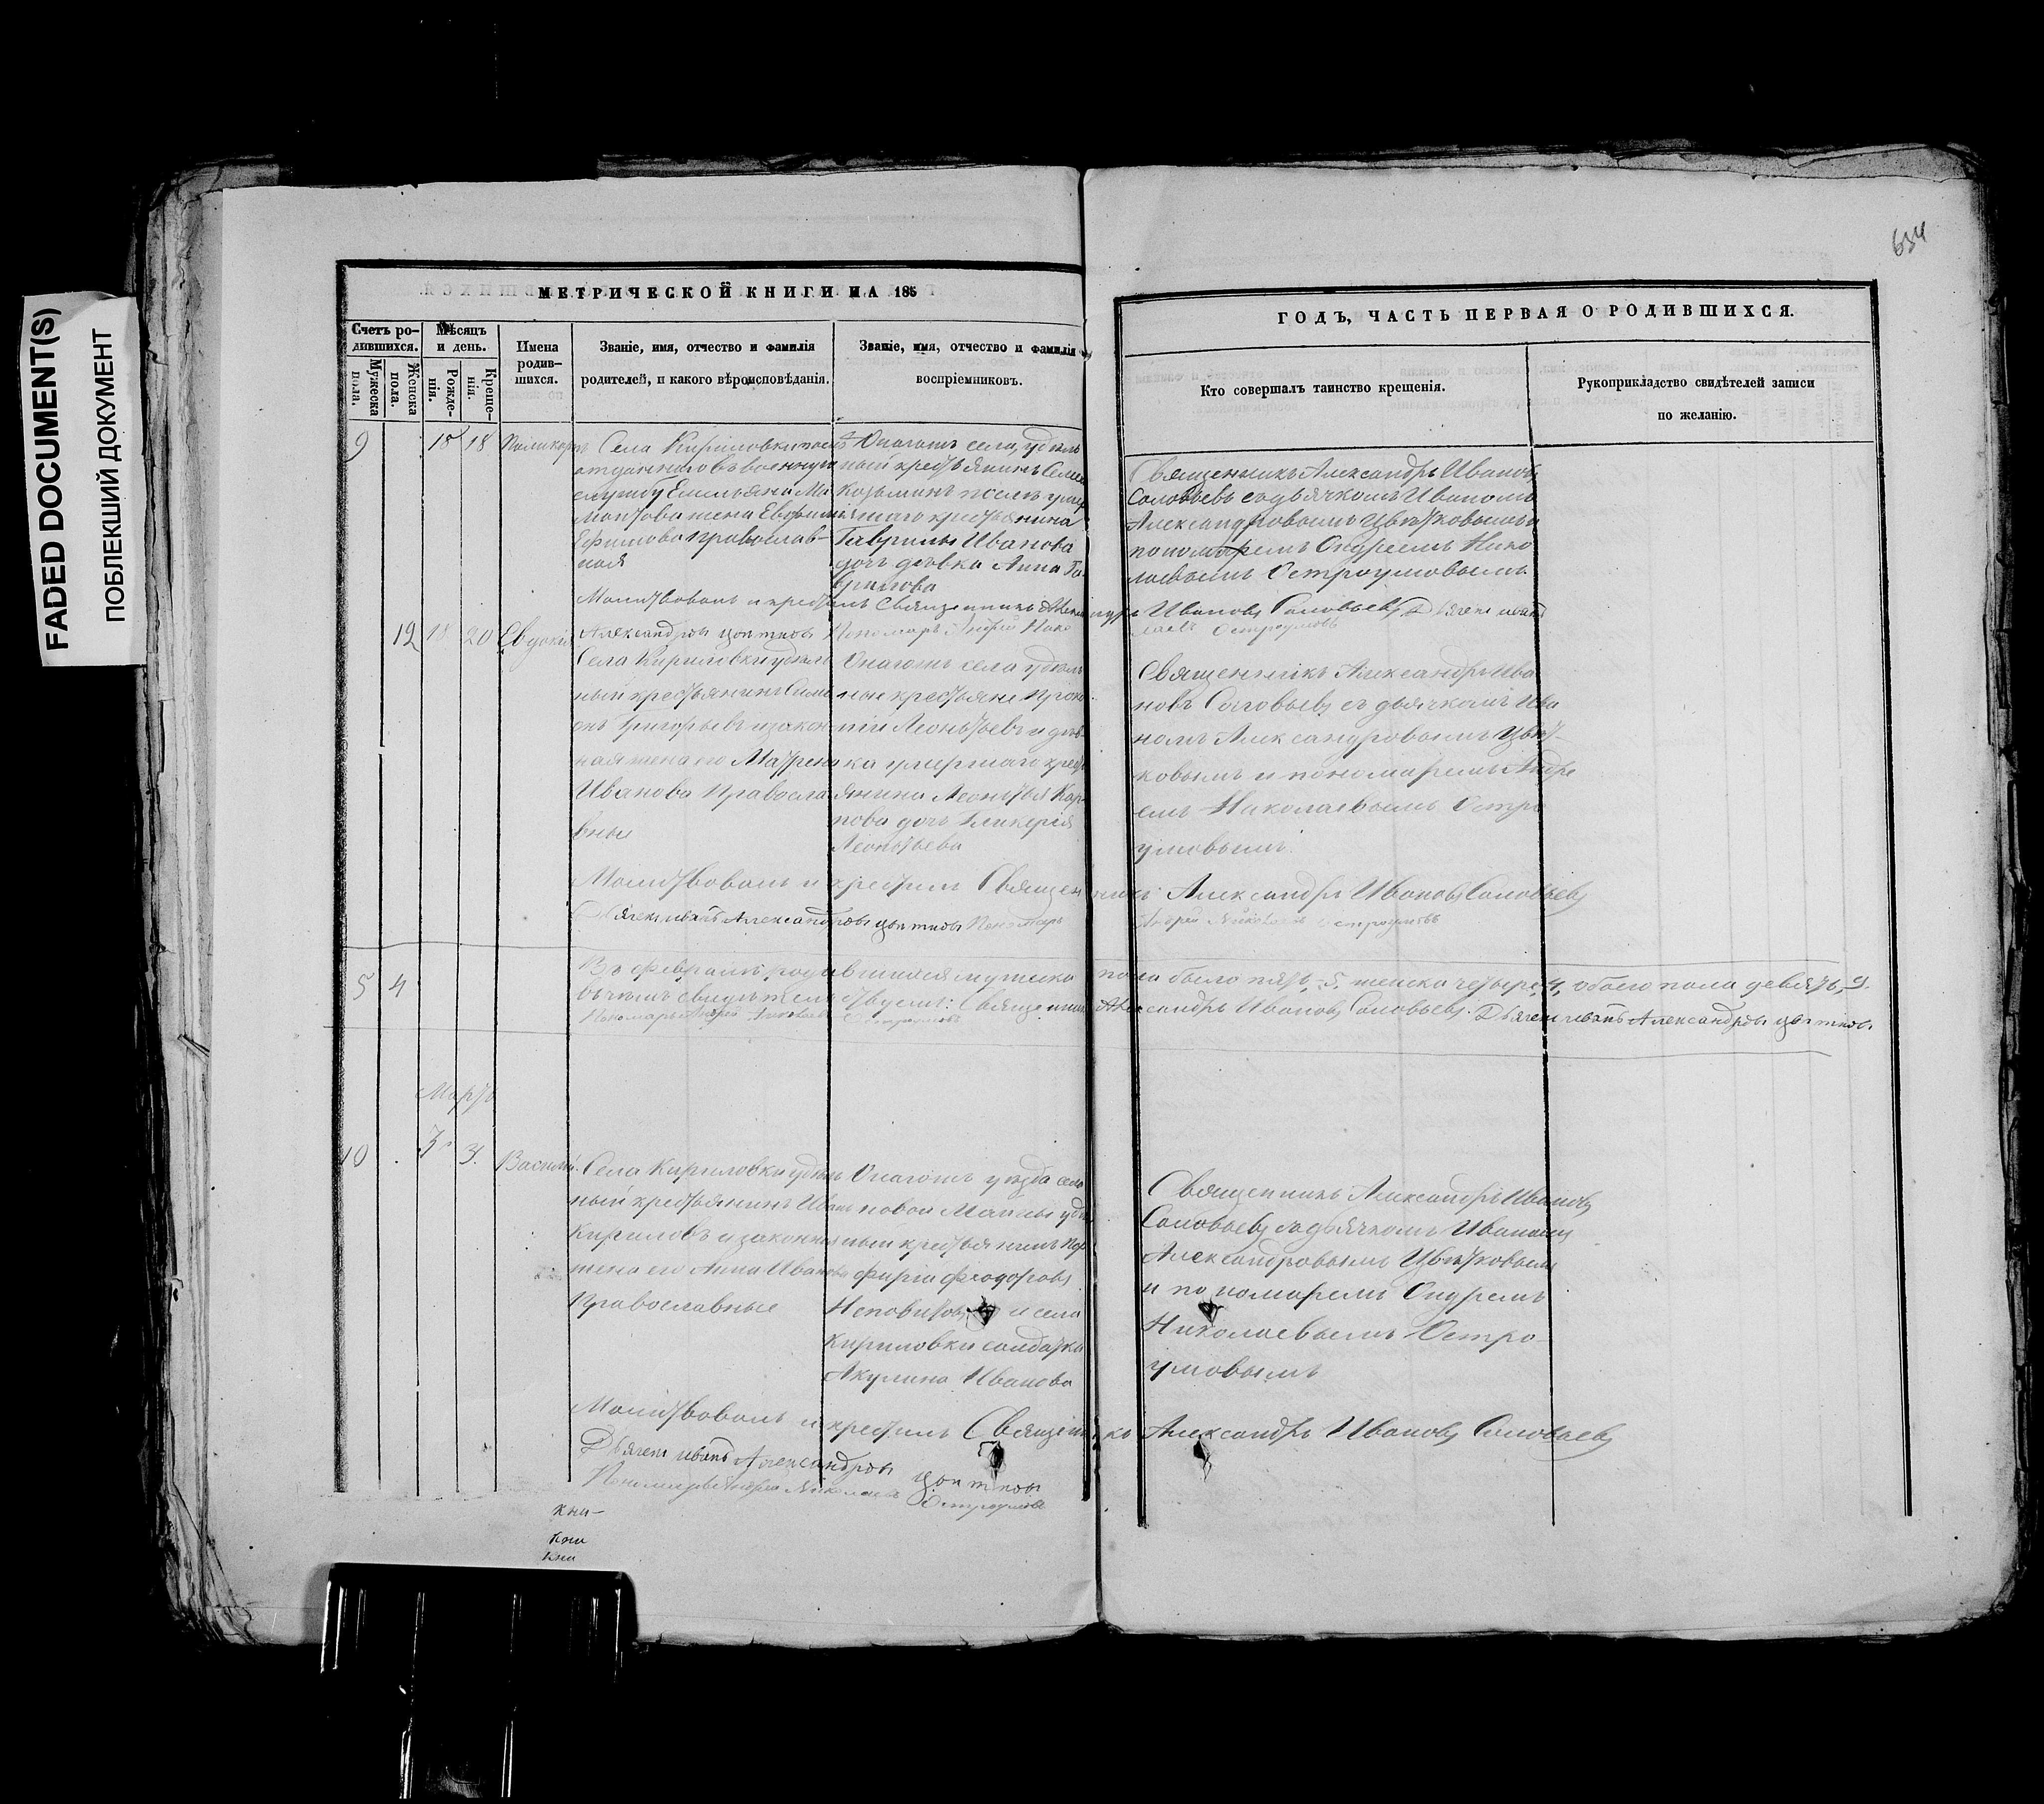 FADED DOCUMENT(S)
ПОБЛЕКШИЙ ДОКУМЕНТ
634
МЕТРИЧЕСКОЙ КНИГИ НА 185
ГОДЪ, ЧАСТЬ ПЕРВАЯ О РОДИВШИХСЯ.
Счетъ ро-
дившихся.
Мужеска
пола.
Женска
пола.
Мѣсяцъ
и день.
Рожде-
нія.
Креще-
нія.
Имена
родив-
шихся.
Званіе, имя, отчество и фамилія
родителей, и какого вѣроисповѣданія.
Званіе, имя, отчество и фамилія
воспріемниковъ.
Кто совершалъ таинство крещенія.
Рукоприкладство свидѣтелей записи
по желанію.
9 18 18 Поликарпъ
Села Кириловки
отданнаго въ военную
службу Емельяна Ма
жена Евфимія
Ефимова православ-
ная
Онагожъ села, удѣль
ный крестьянинъ Семенъ
Козьминъ
крестьянина
Гаврилы Иванова
дочь дѣвка Анна Га
врилова
Священникъ Александръ Ивановъ
Соловьевъ съ дьячкомъ Иваномъ
Александровымъ Цвѣтковымъ и
пономаремъ Андреемъ Нико
лаевымъ Остроумовымъ
Молитвовалъ и крестилъ Священникъ Александръ Ивановъ Соловьевъ Дьячекъ Иванъ
Александровъ Цвѣтковъ Пономарь Андрей Нико
лаевъ Остроумовъ
12 18 20 Евдокія
Села Кириловки удѣль
ный крестьянинъ Симе
онъ Григорьевъ и закон
ная жена его Матрена
Иванова Правосла
вные
Онагожъ села удѣль
ные крестьяне Проко
пій Леонтьевъ и дѣв
ка умершаго крест
янина Леонтья Кар
пова дочь Гликерія
Леонтьева
Священникъ Александръ Ива
новъ Соловьевъ съ дьячкомъ Ива
номъ Александровымъ Цвѣт-
ковымъ и пономаремъ Андре
емъ Николаевымъ Остро
умовымъ.
Молитвовалъ и крестилъ Священникъ Александръ Ивановъ Соловьевъ
Дьячекъ Иванъ Александровъ Цвѣтковъ Пономарь Андрей Николаевъ Остроумовъ
5 4
Въ февралѣ родившихся мужеска пола было пять, 5, женска четыре, 4, обоего пола девять, 9.
въ чемъ свидѣтельствуемъ: Священникъ Александръ Ивановъ Соловьевъ. Дьячекъ Иванъ Александровъ Цвѣтковъ
Пономарь Андрей Николаевъ Остроумовъ
Мартъ
10 3 3. Василій.
Села Кириловки удѣль
ный крестьянинъ Иванъ
Кириловъ и законная
жена его Анна Иванова
Православные
Онагожъ уѣзда села
новой Майны удѣ
ный крестьянинъ Пор
фирій Феодоровъ
и села
Кириловки солдатка
Акулина Иванова
Священникъ Александръ Ивановъ
Соловьевъ съ дьячкомъ Иваномъ
Александровымъ Цвѣтковымъ
и пономаремъ Андреемъ
Николаевымъ Остро-
умовымъ
Молитвовалъ и крестилъ Священникъ Александръ Ивановъ Соловьевъ
Дьячекъ Иванъ Александровъ Цвѣтковъ
Пономарь Андрей Николаевъ Остроумовъ
кни-
кни
кни